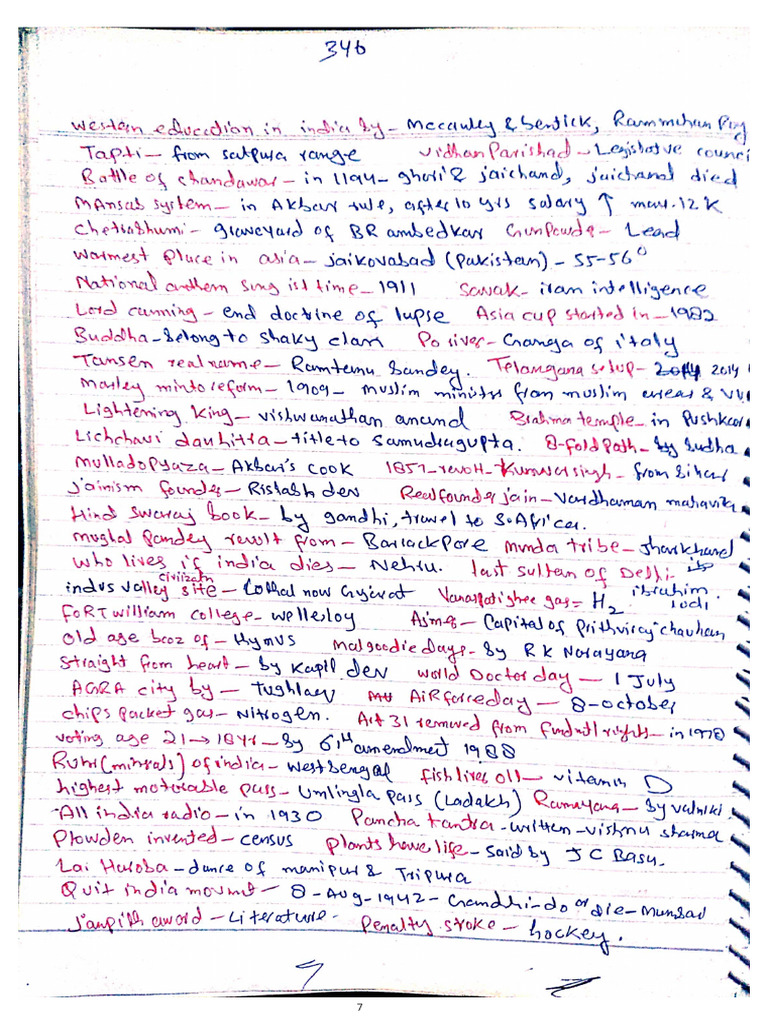 346
Western education in india by - Meccauley & bentick, Rammohan Roy
Tapti - from satpura range vidhan Parishad - Legislative counci
Battle of chandawar - in 1194 - ghori & jaichand, jaichand died
Mansab system - in Akbar rule, after 10 yrs salary ↑ max. 12 K
Chetrabhumi - graveyard of BR ambedkar Gunpowder - Lead
Warmest place in asia - jaikovabad (pakistan) - 55-56°
National anthem sung ist time - 1911 Savak - iran intelligence
Lord canning - end doctrine of lapse Asia cup started in - 1982
Buddha - Belong to shaky clan Po river - Ganga of italy
Tansen real name - Ramtanu Pandey. Telangana setup - 2014
Morley minto reform - 1909 - muslim minister from muslim areas &
Lightening king - vishwanathan anand Brahma temple - in Pushkar
Lichchavi dauhitra - title to Samudragupta. 8-fold path - by Budha
Mulladopyaza - Akbar's cook 1857 - revolt - Kunwar singh - from Bihar
jainism founder - Rishabh dev Real founder jain - Vardhaman mahavir
Hind swaraj book - by gandhi, travel to S.Africa.
mughal Pandey revolt from - Barrackpore munda tribe - Jharkhand
who lives if india dies - Nehru. last sultan of Delhi -
indus valley civilizatn site - Lothal now Gujarat Vanaspati ghee gas = H2 ibrahim lodi
FORT william college - wellesley Ajmer - Capital of Prithviraj chauhan
Old age bcoz of - thymus malgoodie days - by R K Narayana
Straight from heart - by Kapil dev world Doctor day - 1 July
AGRA city by - Tughlaq AiR force day - 8-october
chips packet gas - Nitrogen. Art 31 removed from fundntl rights - in 1978
voting age 21 → 18 yr - By 61th amendment 1988
Ruhr (minrals) of india - West bengal fish liver oil - vitamin D
highest motorable pass - Umlingla pass (Ladakh) Ramayana - by valmiki
All india radio - in 1930 Pancha tantra - written - vishnu sharma
Plowden invented - census Plants have life - said by J C Basu.
Lai Haroba - dance of manipur & Tripura
Quit india movmet - 8 - Aug - 1942 - Gandhi - do or die - Mumbai
Janpith award - Literature - Penalty stroke - hockey.
7